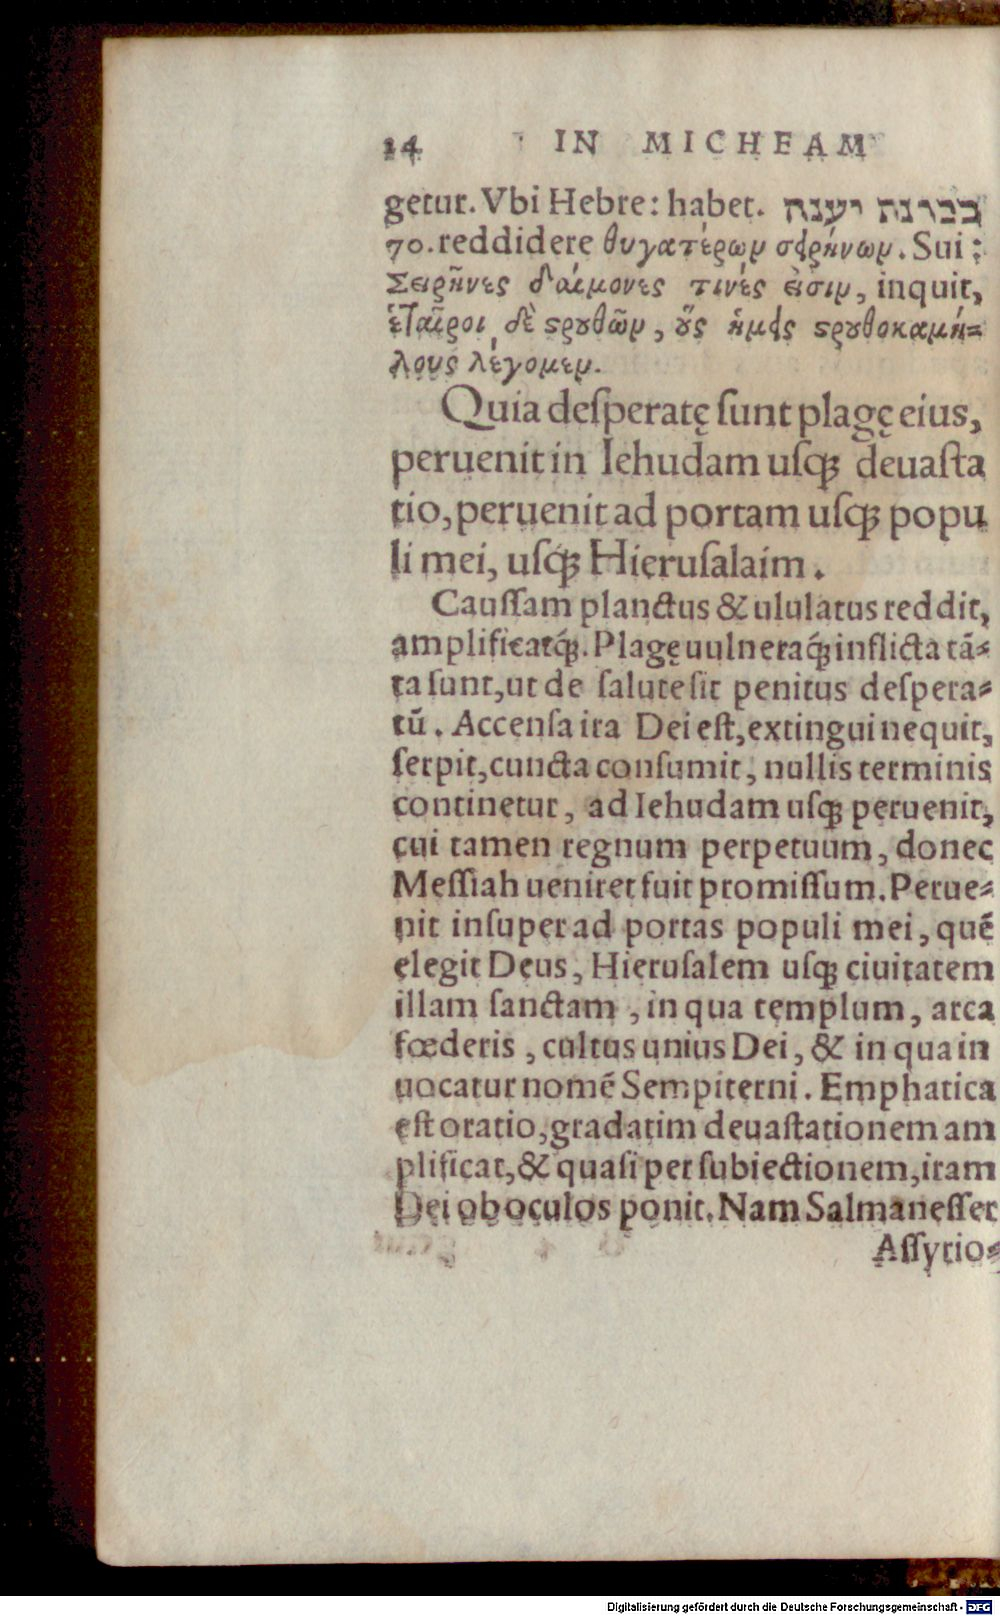 24 IN MICHEAM
getur. Vbi Hebre: habet. ככרנת יענה
70. reddidere θυγατέρωμ σειρήνωμ. Sui:
Σειρῆνες δαίμονες τινές εἰσιμ, inquit,
ἑταῖροι δὲ ςρȣθῶμ, ȣ̓́ς ἡμεῖς ςρȣθοκαμή⸗
λους λέγομεμ.
Quia deſperatę ſunt plagę eius,
peruenit in Iehudam uſqꝫ deuaſta
tio, peruenit ad portam uſqꝫ popu
li mei, uſqꝫ Hieruſalaim.
Cauſſam planctus & ululatus reddit,
amplificatqꝫ́. Plagę uulneraqꝫ́ inflicta tã⸗
ta ſunt, ut de ſalute ſit penitus deſpera⸗
tũ. Accenſa ira Dei eſt, extingui nequit,
ſerpit, cuncta conſumit, nullis terminis
continetur, ad Iehudam uſqꝫ peruenit,
cui tamen regnum perpetuum, donec
Meſſiah ueniret fuit promiſſum. Perue⸗
nit inſuper ad portas populi mei, quẽ
elegit Deus, Hieruſalem uſqꝫ ciuitatem
illam ſanctam, in qua templum, arca
fœderis, cultus unius Dei, & in qua in
uocatur nomẽ Sempiterni. Emphatica
eſt oratio, gradatim deuaſtationem am
plificat, & quaſi per ſubiectionem, iram
Dei ob oculos ponit. Nam Salmaneſſer
Aſſyrio⸗
Digitalisierung gefördert durch die Deutsche Forschungsgemeinschaft - DFG